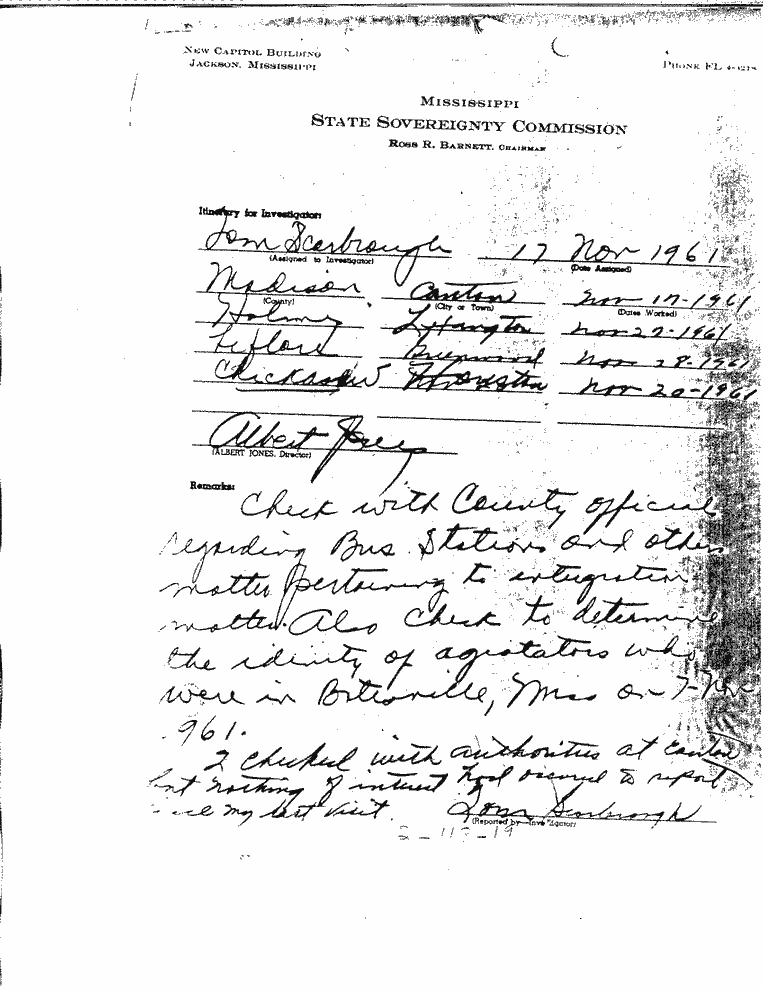 NEW CAPITOL BUILDING
JACKSON, MISSISSIPPI
PHONE FL
MISSISSIPPI
STATE SOVEREIGNTY COMMISSION
ROSS R. BARNETT, CHAIRMAN
Itinerary for Investigator:
Tom Scarbrough 17 Nov 1961
(Assigned to Investigator) (Date Assigned)
Madison Canton Nov 17-1961
(County) (City or Town) (Dates Worked)
Holmes Lexington Nov 27-1961
Leflore Greenwood Nov 28-1961
Chickasaw Houston Nov 20-1961
Albert Jones
(ALBERT JONES, Director)
Remarks:
Check with County official
regarding Bus Stations and other
matter pertaining to integration
matter. Also check to determine
the idenity of agistators who
were in Batesville, Miss on 7-Nov
961.
I checked with authorities at Canton
but nothing of interest had occured to report
my last visit. Tom Scarbrough
(Reported by Investigator)
2-112-19